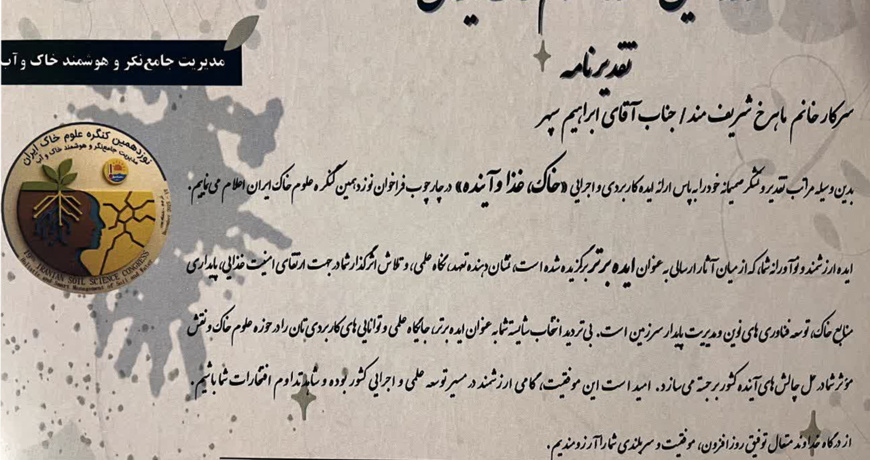 مدیریت جامع‌نگر و هوشمند خاک و آب
تقدیرنامه
سرکار خانم ماهرخ شریف مند / جناب آقای ابراهیم سپهر
نوزدهمین کنگره علوم خاک ایران
مدیریت جامع‌نگر و هوشمند خاک و آب
IRANIAN SOIL SCIENCE CONGRESS
and Smart Management of Soil and Water
بدین وسیله مراتب تقدیر و تشکر صمیمانه خود را به پاس ارائه ایده کاربردی و اجرایی «خاک، غذا و آینده» در چارچوب فراخوان نوزدهمین کنگره علوم خاک ایران اعلام می‌نماییم.
ایده ارزشمند و نوآورانه شما، که از میان آثار ارسالی به عنوان ایده برتر برگزیده شده است، نشان دهنده تعهد، نگاه علمی، و تلاش اثرگذار شما در جهت ارتقای امنیت غذایی، پایداری
منابع خاک، توسعه فناوری های نوین و مدیریت پایدار سرزمین است. بی تردید انتخاب شایسته شما به عنوان ایده برتر، جایگاه علمی و توانایی های کاربردی تان را در حوزه علوم خاک و نقش
مؤثر شما در حل چالش های آینده کشور برجسته می سازد. امید است این موفقیت، گامی ارزشمند در مسیر توسعه علمی و اجرایی کشور بوده و شاهد تداوم افتخارات شما باشیم.
از درگاه خداوند متعال توفیق روزافزون، موفقیت و سربلندی شما را آرزومندیم.